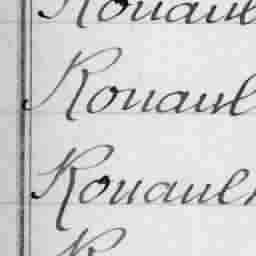 Rouaul
Rouaul
Rouaul